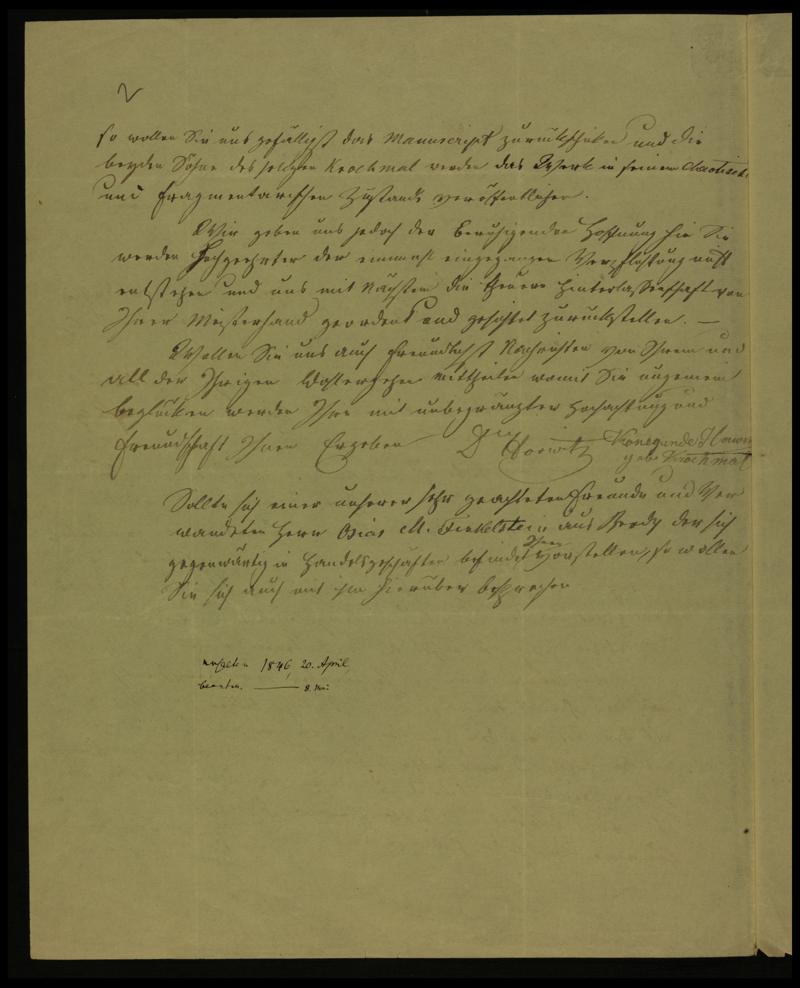 2
so wollen Sie uns gefälligst das Manuscript zurückschicken und die
beyden Söhne des seligen Krochmal werden das Werk in seinem chaotisch
und fragmentarischen Zustande veröffentlichen.
Wir geben uns jedoch der beruhigenden Hoffnung hin Sie
werden Hochgeehrter der einmahl eingegangen Verpflichtung nicht
entstehen und uns mit Nächsten die theuere Hinterlassenschaft von
Ihrer Meisterhand geordnet und gesichtet zurückstellen. —
Wollen Sie uns auch freundlichst Nachrichten von Ihrem und
all der Ihrigen Wohlergehen mittheilen womit Sie ungemein
beglücken werden Ihre mit unbegränzter Hochachtung und
Freundschaft Ihnen Ergeben Dr Horwitz Kunegunde Horwi
geb. Krochmal
Sollte sich einer unserer sehr geachteten Freunde und Ver
wandten Herr Osias M. Finkelstein aus Brody der sich
gegenwärtig in Handelsgeschäften befindet Ihnen vorstellen, so wollen
Sie sich auch mit ihm hierüber besprechen
erhalten 1846, 20. April
beantw. — 8. Mai